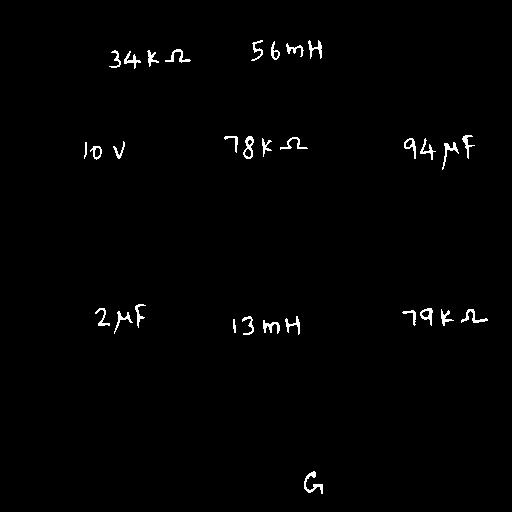 34kΩ 56mH
10 V 78kΩ 94μF
2μF 13mH 79kΩ
G